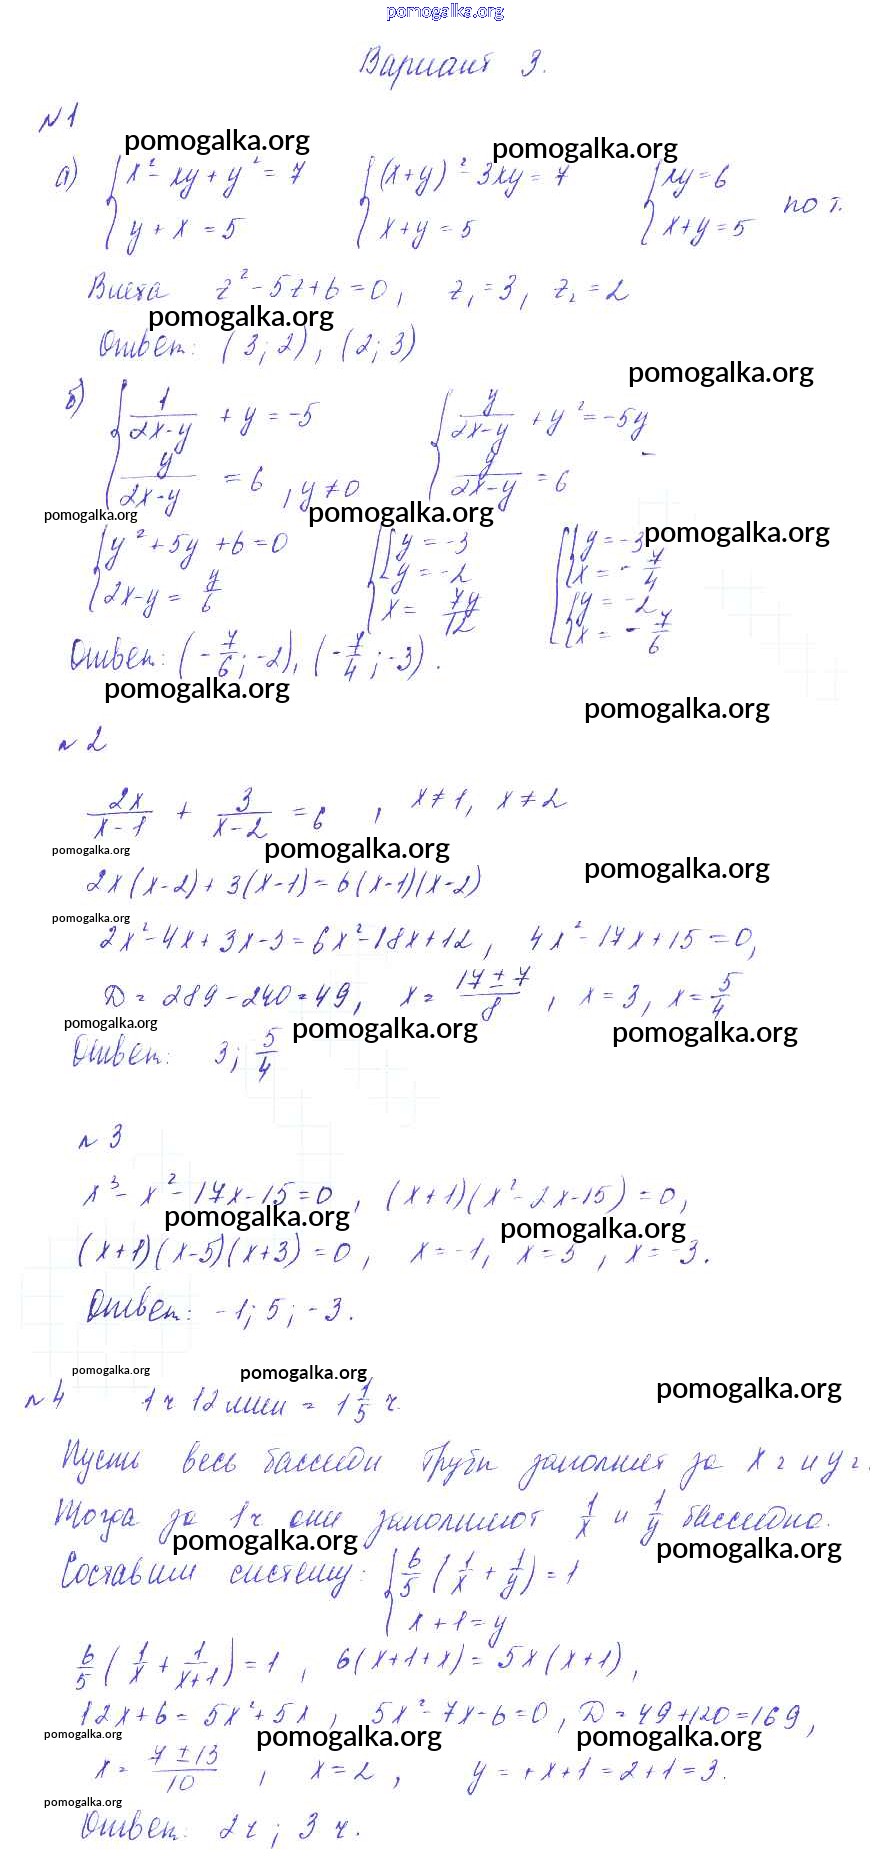 pomogalka.org
Вариант 3.
№1
pomogalka.org pomogalka.org
а) { x² - xy + y² = 7 { (x+y)² - 3xy = 7 { xy = 6
y + x = 5 x + y = 5 x + y = 5 по т.
Виета z² - 5z + 6 = 0, z₁ = 3, z₂ = 2
pomogalka.org
Ответ: (3; 2), (2; 3)
pomogalka.org
б) { 1/(2x-y) + y = -5 { y/(2x-y) + y² = -5y
y/(2x-y) = 6, y ≠ 0 y/(2x-y) = 6
pomogalka.org pomogalka.org pomogalka.org
{ y² + 5y + 6 = 0 { [ y = -3 [ { y = -3
2x-y = y/6 y = -2 x = -7/4
x = 7y/12 { y = -2
x = -7/6
Ответ: (-7/6; -2), (-7/4; -3).
pomogalka.org pomogalka.org
№2
2x/(x-1) + 3/(x-2) = 6, x ≠ 1, x ≠ 2
pomogalka.org pomogalka.org pomogalka.org
2x(x-2) + 3(x-1) = 6(x-1)(x-2)
pomogalka.org
2x² - 4x + 3x - 3 = 6x² - 18x + 12, 4x² - 17x + 15 = 0,
D = 289 - 240 = 49, x = (17 ± 7)/8, x = 3, x = 5/4
pomogalka.org pomogalka.org pomogalka.org
Ответ: 3; 5/4
№3
x³ - x² - 17x - 15 = 0, (x+1)(x² - 2x - 15) = 0,
pomogalka.org pomogalka.org
(x+1)(x-5)(x+3) = 0, x = -1, x = 5, x = -3.
Ответ: -1; 5; -3.
pomogalka.org pomogalka.org pomogalka.org
№4 1 ч 12 мин = 1 1/5 ч.
Пусть весь бассейн трубы заполнят за x ч и y ч.
Тогда за 1 ч они заполняют 1/x и 1/y бассейна.
pomogalka.org pomogalka.org
Составим систему: { 6/5 (1/x + 1/y) = 1
x + 1 = y
6/5 (1/x + 1/(x+1)) = 1, 6(x+1+x) = 5x(x+1),
12x + 6 = 5x² + 5x, 5x² - 7x - 6 = 0, D = 49 + 120 = 169,
pomogalka.org pomogalka.org pomogalka.org
x = (7 ± 13)/10, x = 2, y = x + 1 = 2 + 1 = 3.
pomogalka.org
Ответ: 2 ч; 3 ч.